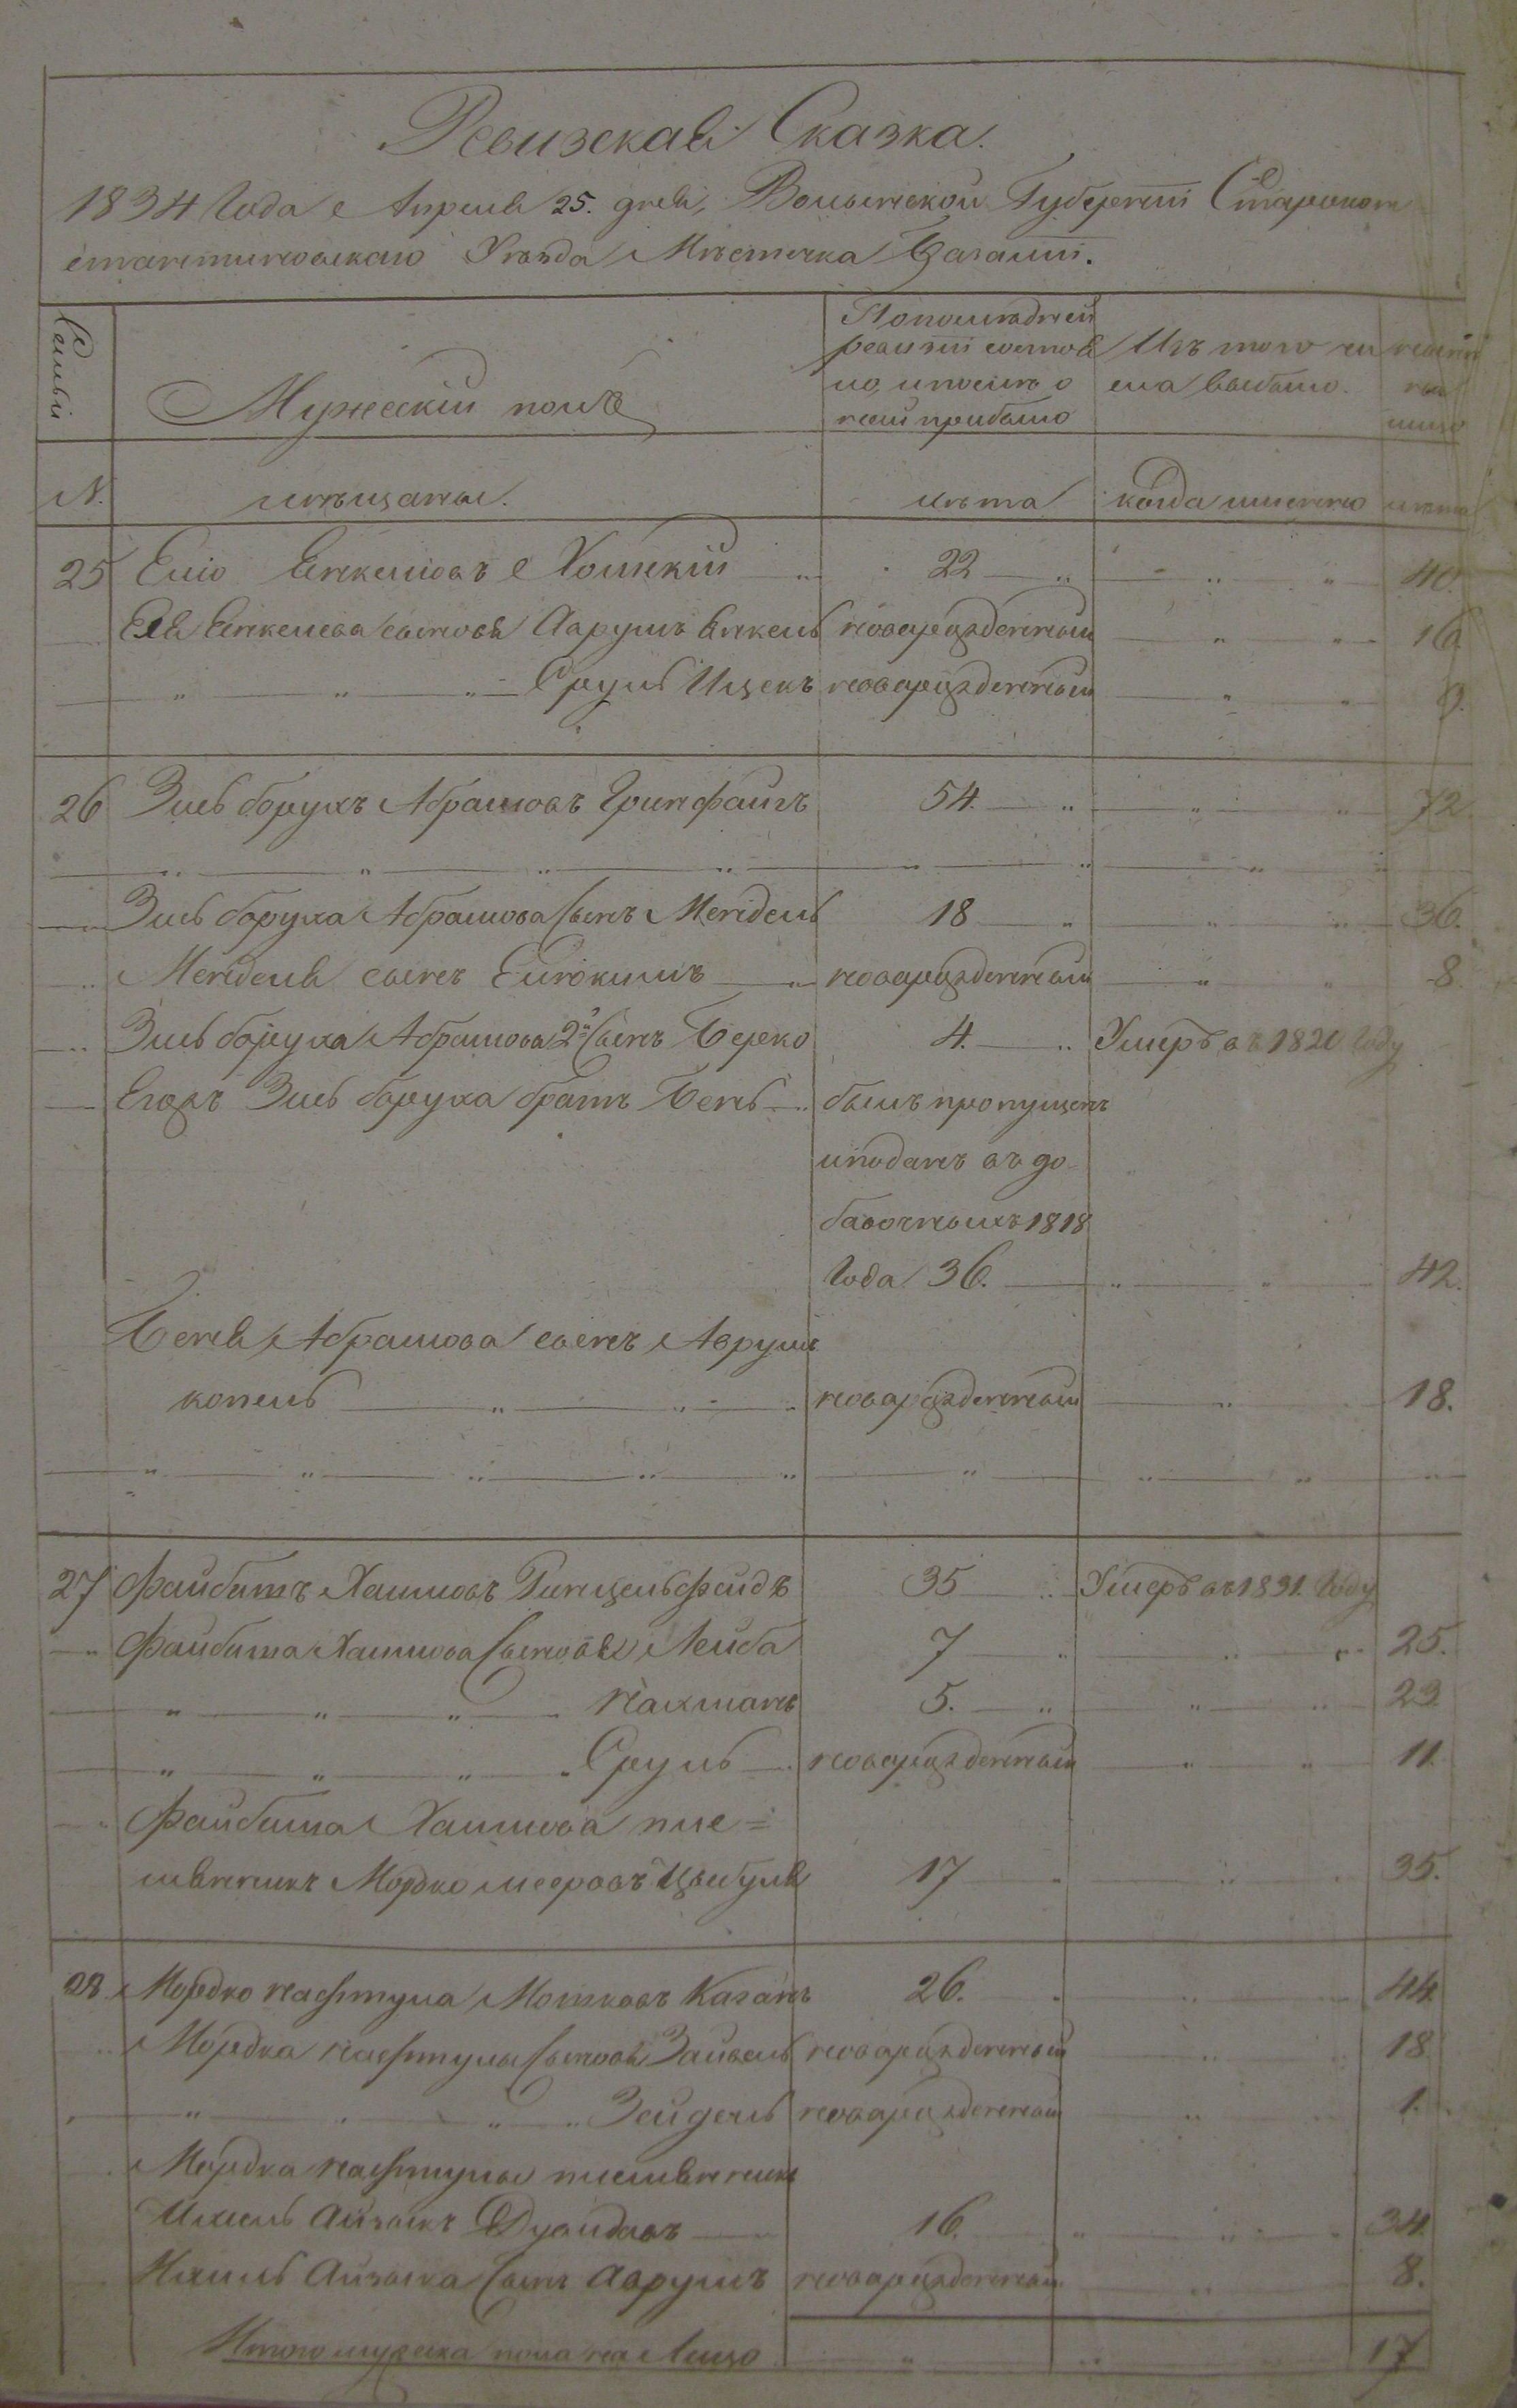 Ревизская Сказка.
1834 Года Апреля 25. дня, Волынской Губернiи Старокон
стантиновскаго Уезда Местечка Базалiи.
Семьи
Мужескiй полъ
По последней
ревизiи состоя
ло, и после о
ной прибыло
Изъ того чи
сла выбыло.
ныне
на
лицо
N. мещаны. лета когда именно лета
25 Елiо Янкелiовъ Хомскiй 22 40.
Еля Янкелева сыновя Аврумъ Янкель новарожденный 16
Сруль Ицекъ новарожденный 9.
26 Зись борухъ Абрамовъ 54. 72
Зись боруха Абрамова Сынъ Мендель 18 36.
Менделя сынъ новарожденный 8.
Зись боруха Абрамова 2й Сынъ Берко 4. Умеръ въ 1820 Году
Егожъ Зись боруха братъ Бень былъ пропущенъ
и поданъ въ до
бавочныхъ 1818
Года 36. 42.
Беня Абрамова сынъ Аврумъ
копель новарожденный 18.
27 Файбишъ Хаимовъ 35 Умеръ въ 1831. Году
Файбиша Хаимова Сыновья Лейба 7 25.
Нахманъ 5. 23
Сруль новарожденный 11.
Файбиша Хаимова пле=
мянникъ Мордко мееровъ Цыбуля 17 35.
28. Мордко нафтула Мошковъ Каганъ 26. 44
Мордка нафтулы Сыновя Зайвель новарожденный 18
Зейдель новарожденный 1.
Мордка нафтулы племянникъ
Ихиль Айзикъ Дувидовъ 16. 34
Ихиль Айзика Сынъ Аврумъ новарожденный 8.
Итого мужеска пола на Лицо 17